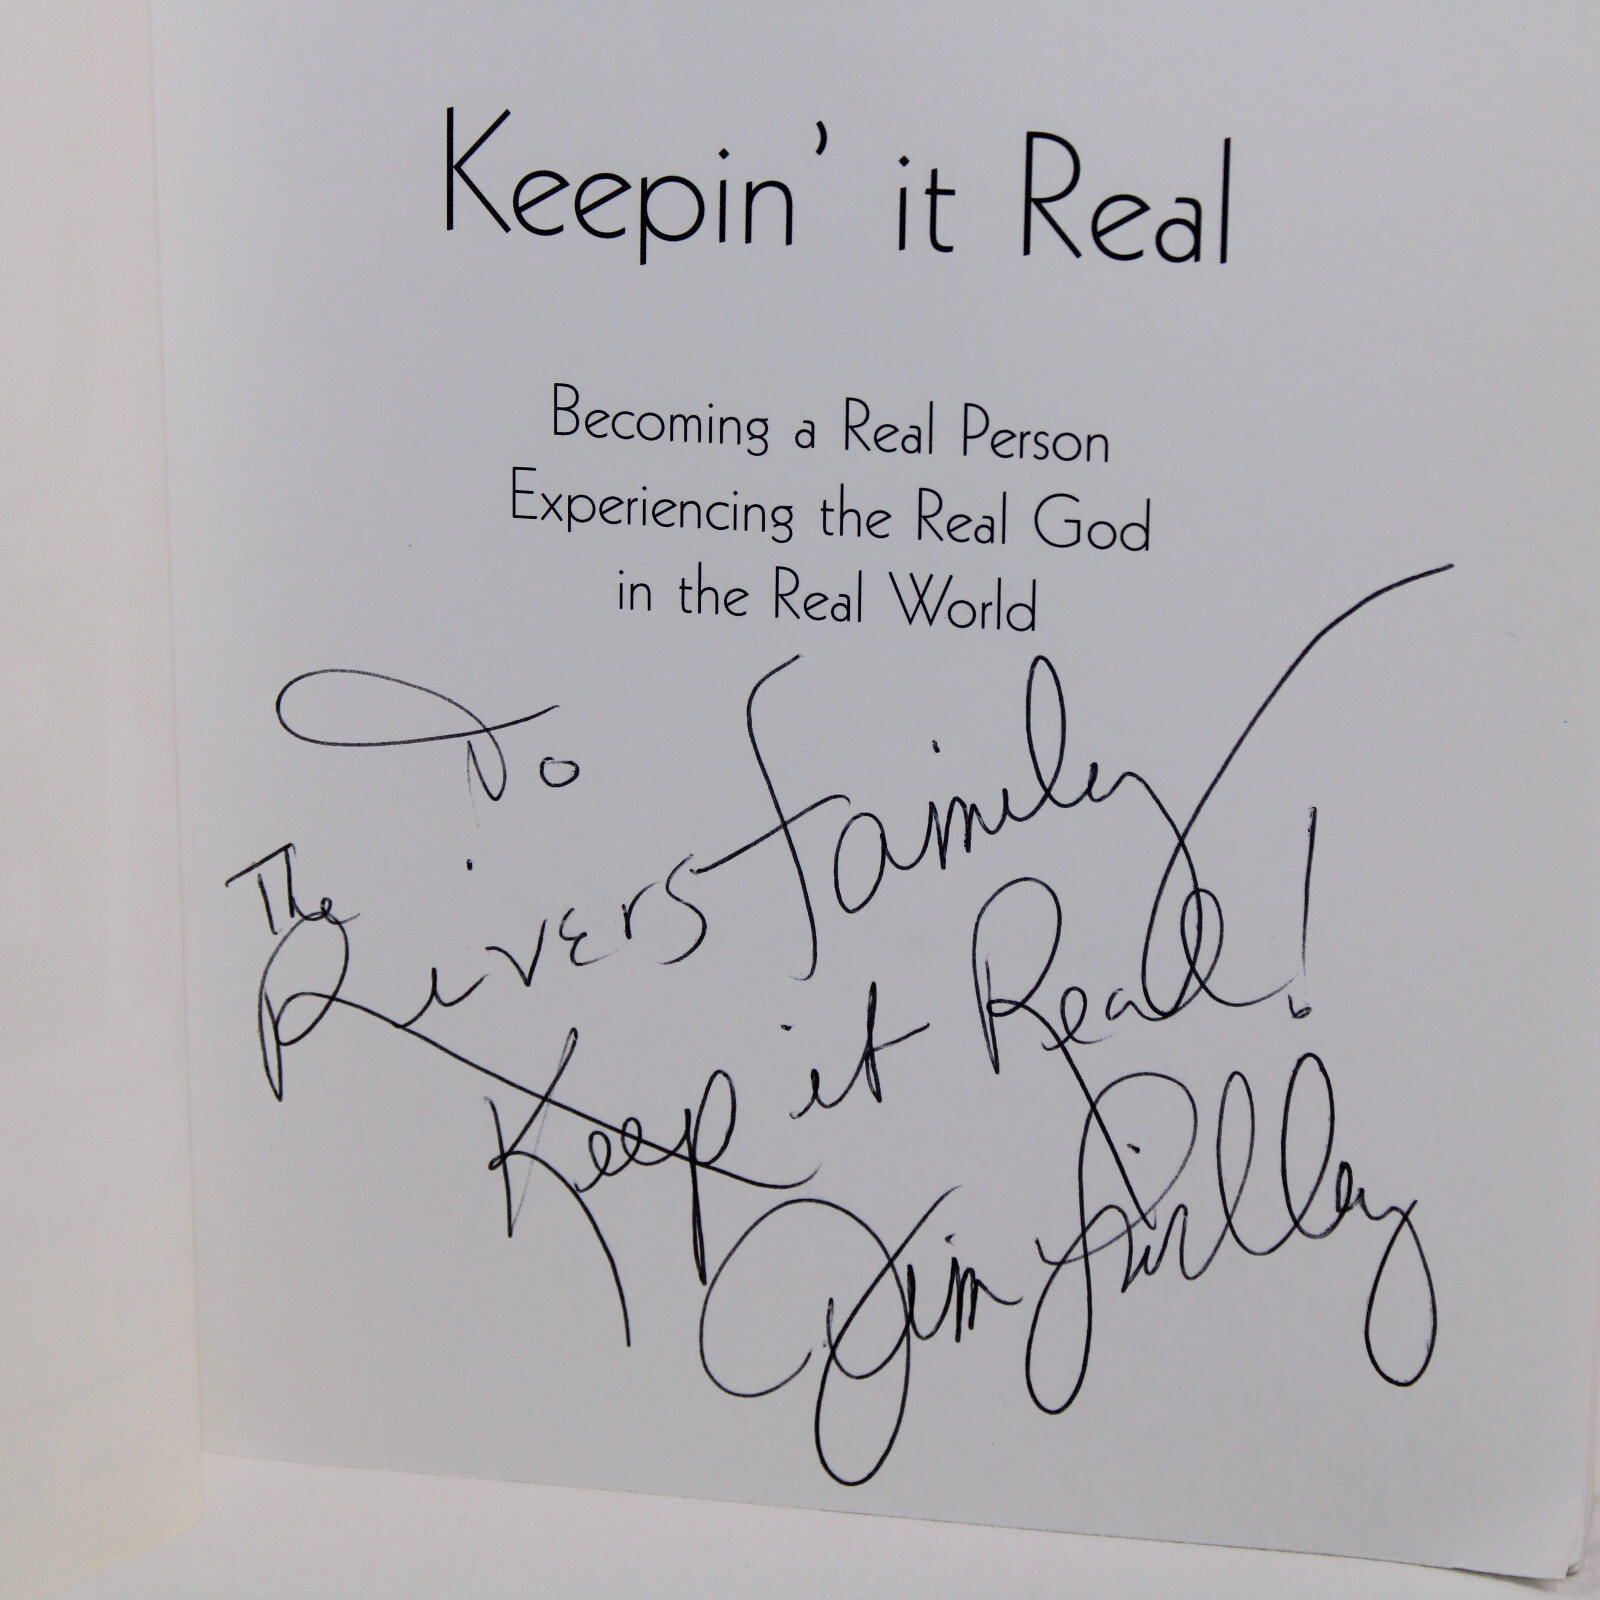 Keepin' it Real
Becoming a Real Person
Experiencing the Real God
in the Real World
To
The
Rivers Family
Keep it Real!
Jim